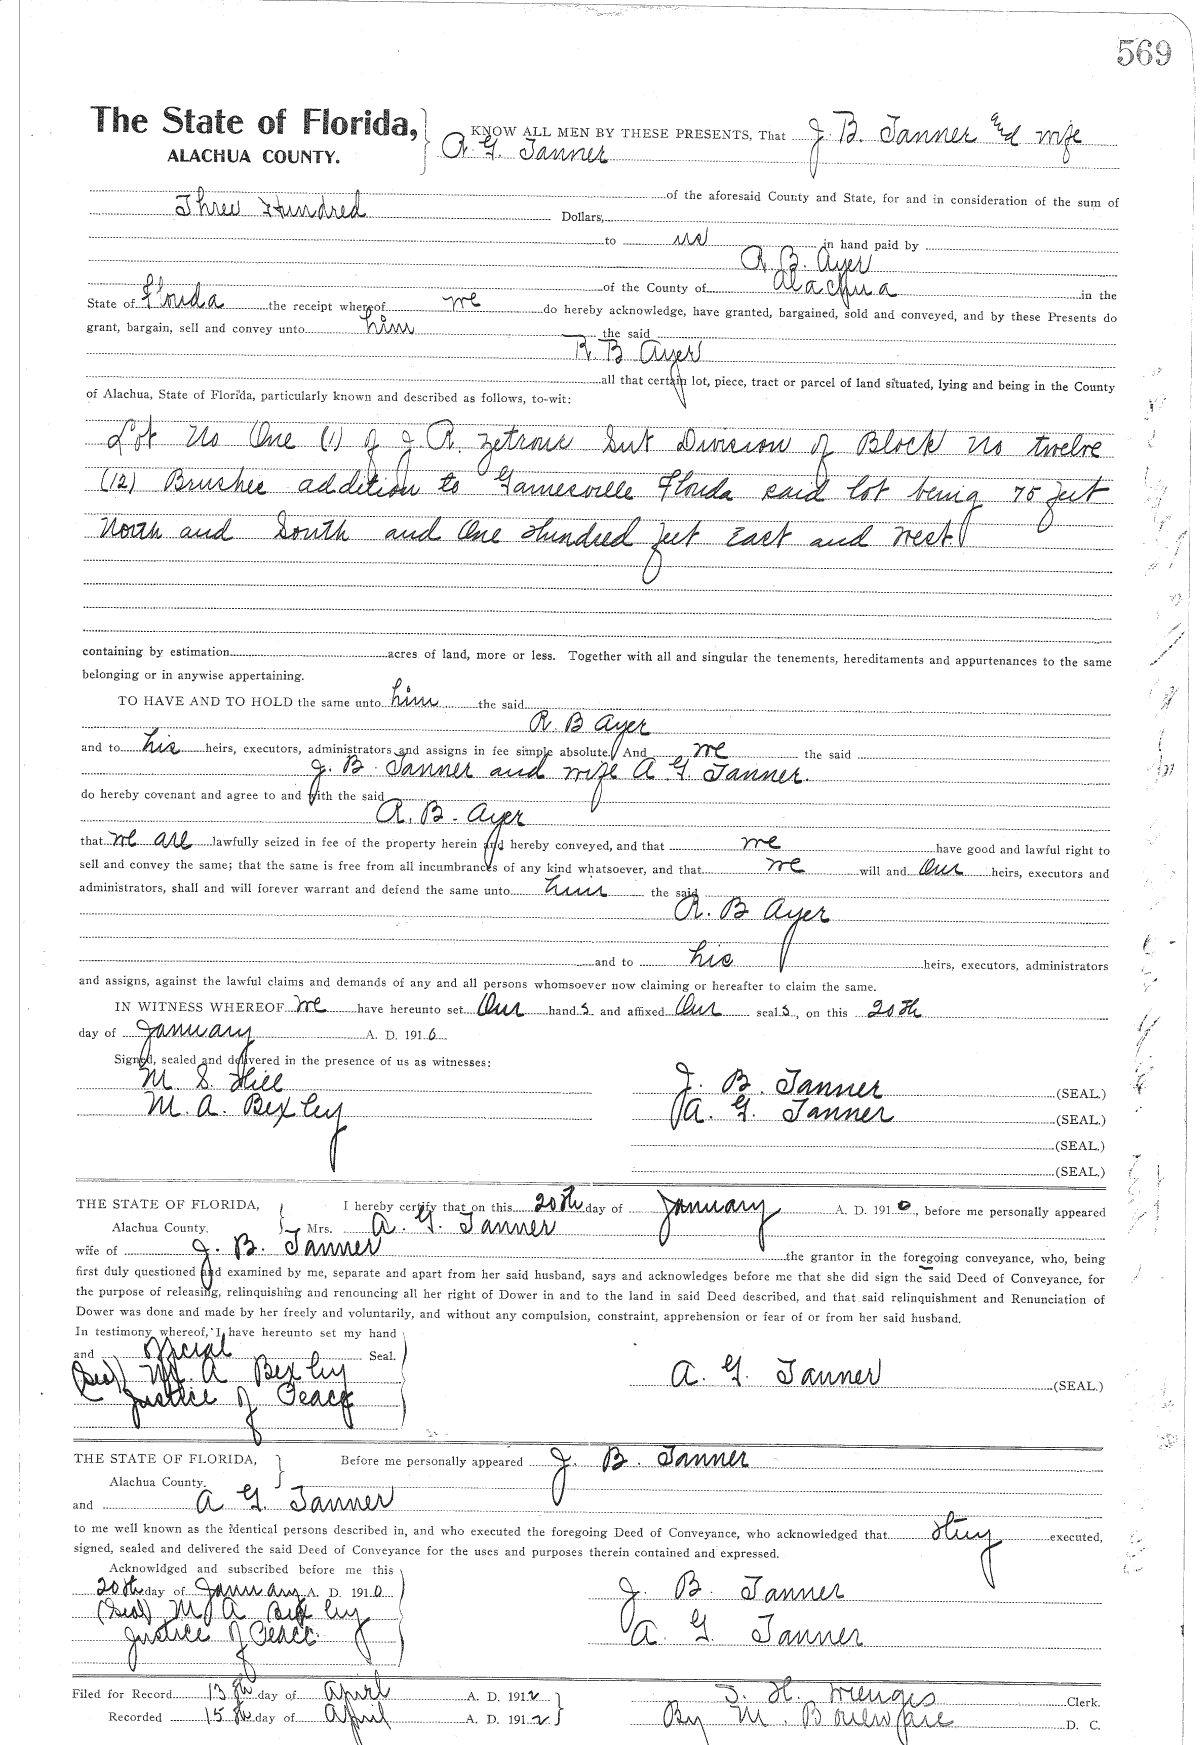 569
The State of Florida,
ALACHUA COUNTY.
KNOW ALL MEN BY THESE PRESENTS, That J. B. Tanner and wife
A. G. Tanner
of the aforesaid County and State, for and in consideration of the sum of
Three Hundred Dollars,
to us in hand paid by
R. B. Ayer
of the County of Alachua in the
State of Florida the receipt whereof we do hereby acknowledge, have granted, bargained, sold and conveyed, and by these Presents do
grant, bargain, sell and convey unto him the said
R B Ayer
all that certain lot, piece, tract or parcel of land situated, lying and being in the County
of Alachua, State of Florida, particularly known and described as follows, to-wit:
Lot No One (1) of J. A. Division of Block No twelve
(12) Brushes addition to Gainesville Florida said lot being 75 feet
North and South and One Hundred feet East and West
containing by estimation acres of land, more or less. Together with all and singular the tenements, hereditaments and appurtenances to the same
belonging or in anywise appertaining.
TO HAVE AND TO HOLD the same unto him the said
R. B Ayer
and to his heirs, executors, administrators and assigns in fee simple absolute. And we the said
J. B. Tanner and wife A G. Tanner.
do hereby covenant and agree to and with the said
R. B. Ayer
that we are lawfully seized in fee of the property herein and hereby conveyed, and that we have good and lawful right to
sell and convey the same; that the same is free from all incumbrances of any kind whatsoever, and that we will and Our heirs, executors and
administrators, shall and will forever warrant and defend the same unto him the said
R. B Ayer
and to his heirs, executors, administrators
and assigns, against the lawful claims and demands of any and all persons whomsoever now claiming or hereafter to claim the same.
IN WITNESS WHEREOF we have hereunto set Our hand s and affixed Our seal s, on this 20th
day of January A. D. 1910
Signed, sealed and delivered in the presence of us as witnesses:
M S. Hill J. B. Tanner (SEAL.)
M. A. Bexley A. G. Tanner (SEAL.)
(SEAL.)
(SEAL.)
THE STATE OF FLORIDA, I hereby certify that on this 20th day of January A. D. 1910, before me personally appeared
Alachua County. Mrs. A. G. Tanner
wife of J. B. Tanner the grantor in the foregoing conveyance, who, being
first duly questioned and examined by me, separate and apart from her said husband, says and acknowledges before me that she did sign the said Deed of Conveyance, for
the purpose of releasing, relinquishing and renouncing all her right of Dower in and to the land in said Deed described, and that said relinquishment and Renunciation of
Dower was done and made by her freely and voluntarily, and without any compulsion, constraint, apprehension or fear of or from her said husband.
In testimony whereof, I have hereunto set my hand
and official Seal.
(Seal) M. A Bexley A. G. Tanner (SEAL.)
Justice of Peace
THE STATE OF FLORIDA, Before me personally appeared J. B. Tanner
Alachua County.
and A G. Tanner
to me well known as the identical persons described in, and who executed the foregoing Deed of Conveyance, who acknowledged that they executed,
signed, sealed and delivered the said Deed of Conveyance for the uses and purposes therein contained and expressed.
Acknowldged and subscribed before me this
20th day of January A. D. 1910 J. B. Tanner
(Seal) M A Bexley A. G. Tanner
Justice of Peace.
Filed for Record 13th day of April A. D. 1912 S. H. Wienges Clerk.
Recorded 15th day of April A. D. 1912 By M. D. C.